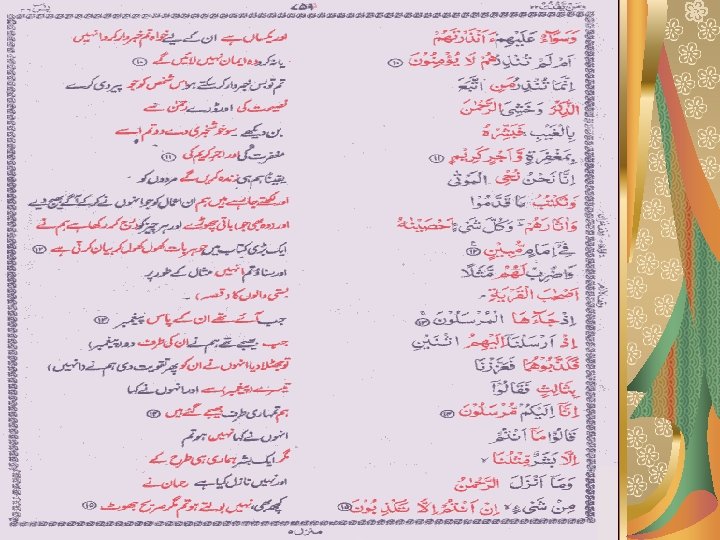 ومن یقنت ۲۲
۷۵۹
یٰسٓ ۳۶
وَسَوَآءٌ عَلَيْهِمْ ءَاَنْذَرْتَهُمْ
اَمْ لَمْ تُنْذِرْهُمْ لَا يُؤْمِنُوْنَ ⑩
اِنَّمَا تُنْذِرُ مَنِ اتَّبَعَ
الذِّكْرَ وَخَشِيَ الرَّحْمٰنَ
بِالْغَيْبِ ۚ فَبَشِّرْهُ
بِمَغْفِرَةٍ وَّاَجْرٍ كَرِيْمٍ ⑪
اِنَّا نَحْنُ نُحْيِ الْمَوْتٰى
وَنَكْتُبُ مَا قَدَّمُوْا
وَاٰثَارَهُمْ ۚ وَكُلَّ شَيْءٍ اَحْصَيْنٰهُ
فِيْٓ اِمَامٍ مُّبِيْنٍ ⑫
وَاضْرِبْ لَهُمْ مَّثَلًا
اَصْحٰبَ الْقَرْيَةِ ۘ
اِذْ جَآءَهَا الْمُرْسَلُوْنَ ⑬
اِذْ اَرْسَلْنَآ اِلَيْهِمُ اثْنَيْنِ
فَكَذَّبُوْهُمَا فَعَزَّزْنَا
بِثَالِثٍ فَقَالُوْٓا
اِنَّآ اِلَيْكُمْ مُّرْسَلُوْنَ ⑭
قَالُوْا مَآ اَنْتُمْ
اِلَّا بَشَرٌ مِّثْلُنَا ۙ
وَمَآ اَنْزَلَ الرَّحْمٰنُ
مِنْ شَيْءٍ ۙ اِنْ اَنْتُمْ اِلَّا تَكْذِبُوْنَ ⑮
اور یکساں ہے ان کے لیے خواہ تم خبردار کرو انہیں
یا نہ کرو، وہ ایمان نہیں لائیں گے ⑩
تم تو بس خبردار کر سکتے ہو اس شخص کو جو پیروی کرے
نصیحت کی اور ڈرے رحمٰن سے
بن دیکھے سو خوشخبری دے دو تم اسے
مغفرت کی اور اجرِ کریم کی ⑪
یقیناً ہم ہی زندہ کریں گے مردوں کو
اور لکھتے جا رہے ہیں ہم ان اعمال کو جو انہوں نے کر کے آگے بھیج دیے
اور وہ بھی جو باقی چھوڑے اور ہر چیز کو درج کر رکھا ہے ہم نے
ایک بڑی کتاب میں جو ہر بات کھول کھول کر بیان کرتی ہے ⑫
اور سناؤ تم انہیں مثال کے طور پر
بستی والوں کا (قصہ)
جب آئے تھے ان کے پاس پیغمبر ⑬
جب بھیجے تھے ہم نے ان کی طرف دو (پیغمبر)
تو جھٹلا دیا انہوں نے ان کو پھر تقویت دی ہم نے (انہیں)
تیسرے (پیغمبر) سے اور انہوں نے کہا
ہم تمہاری طرف بھیجے گئے ہیں ⑭
انہوں نے کہا نہیں ہو تم
مگر ایک بشر ہماری ہی طرح کے
اور نہیں نازل کیا ہے رحمان نے
کچھ بھی، نہیں بولتے ہو تم مگر صریح جھوٹ ⑮
منزل ۵